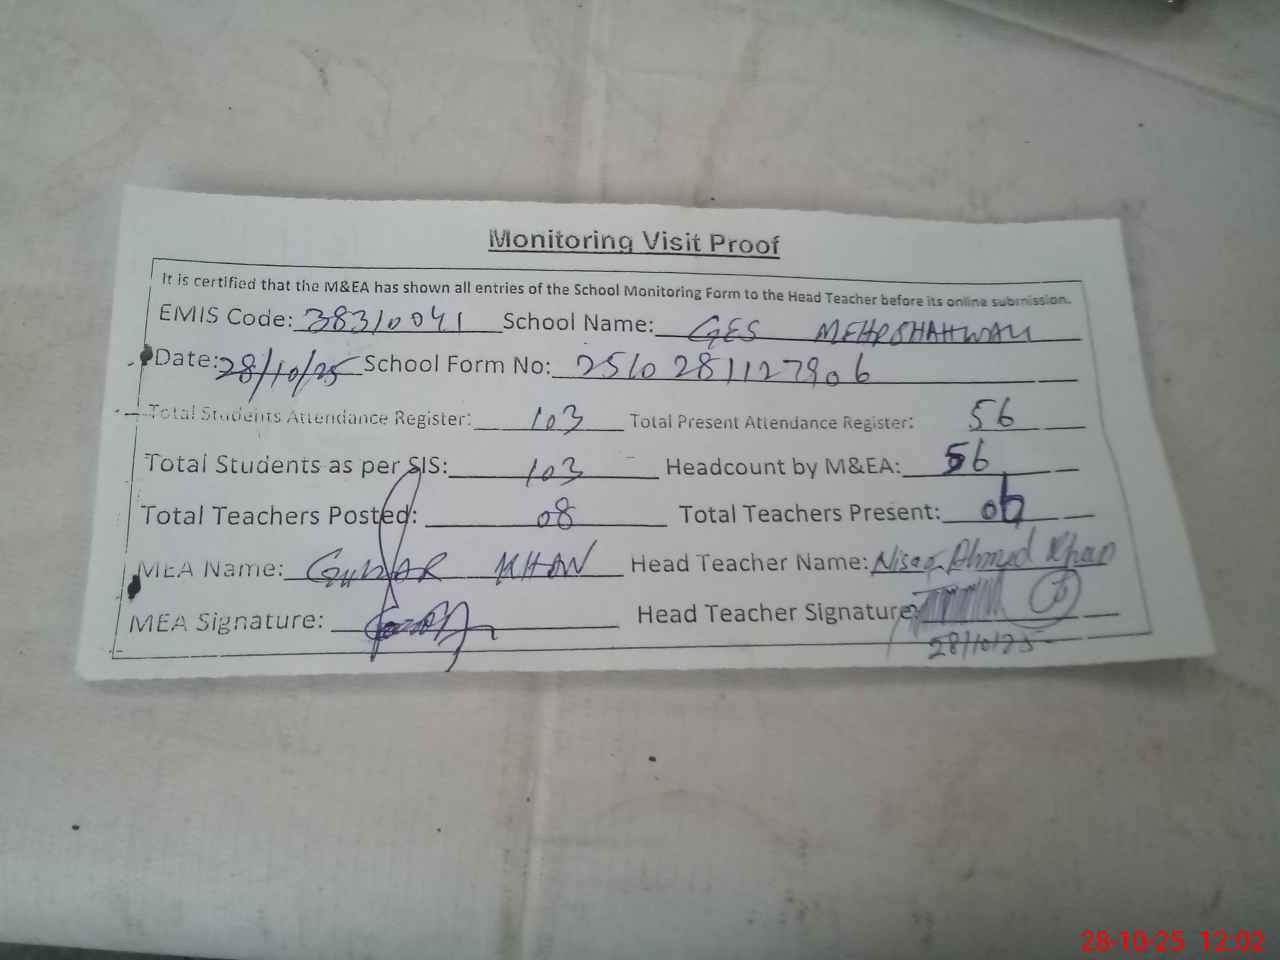 Monitoring Visit Proof
It is certified that the M&EA has shown all entries of the School Monitoring Form to the Head Teacher before its online submission.
EMIS Code: 38310041 School Name: GES MEHRSHAHWALI
Date: 28/10/25 School Form No: 2510281127906
Total Students Attendance Register: 103 Total Present Attendance Register: 56
Total Students as per SIS: 103 Headcount by M&EA: 56
Total Teachers Posted: 08 Total Teachers Present: 06
MEA Name: KHAN Head Teacher Name: Nisar Ahmed Khan
MEA Signature: Head Teacher Signature:
28/10/25
28-10-25 12:02